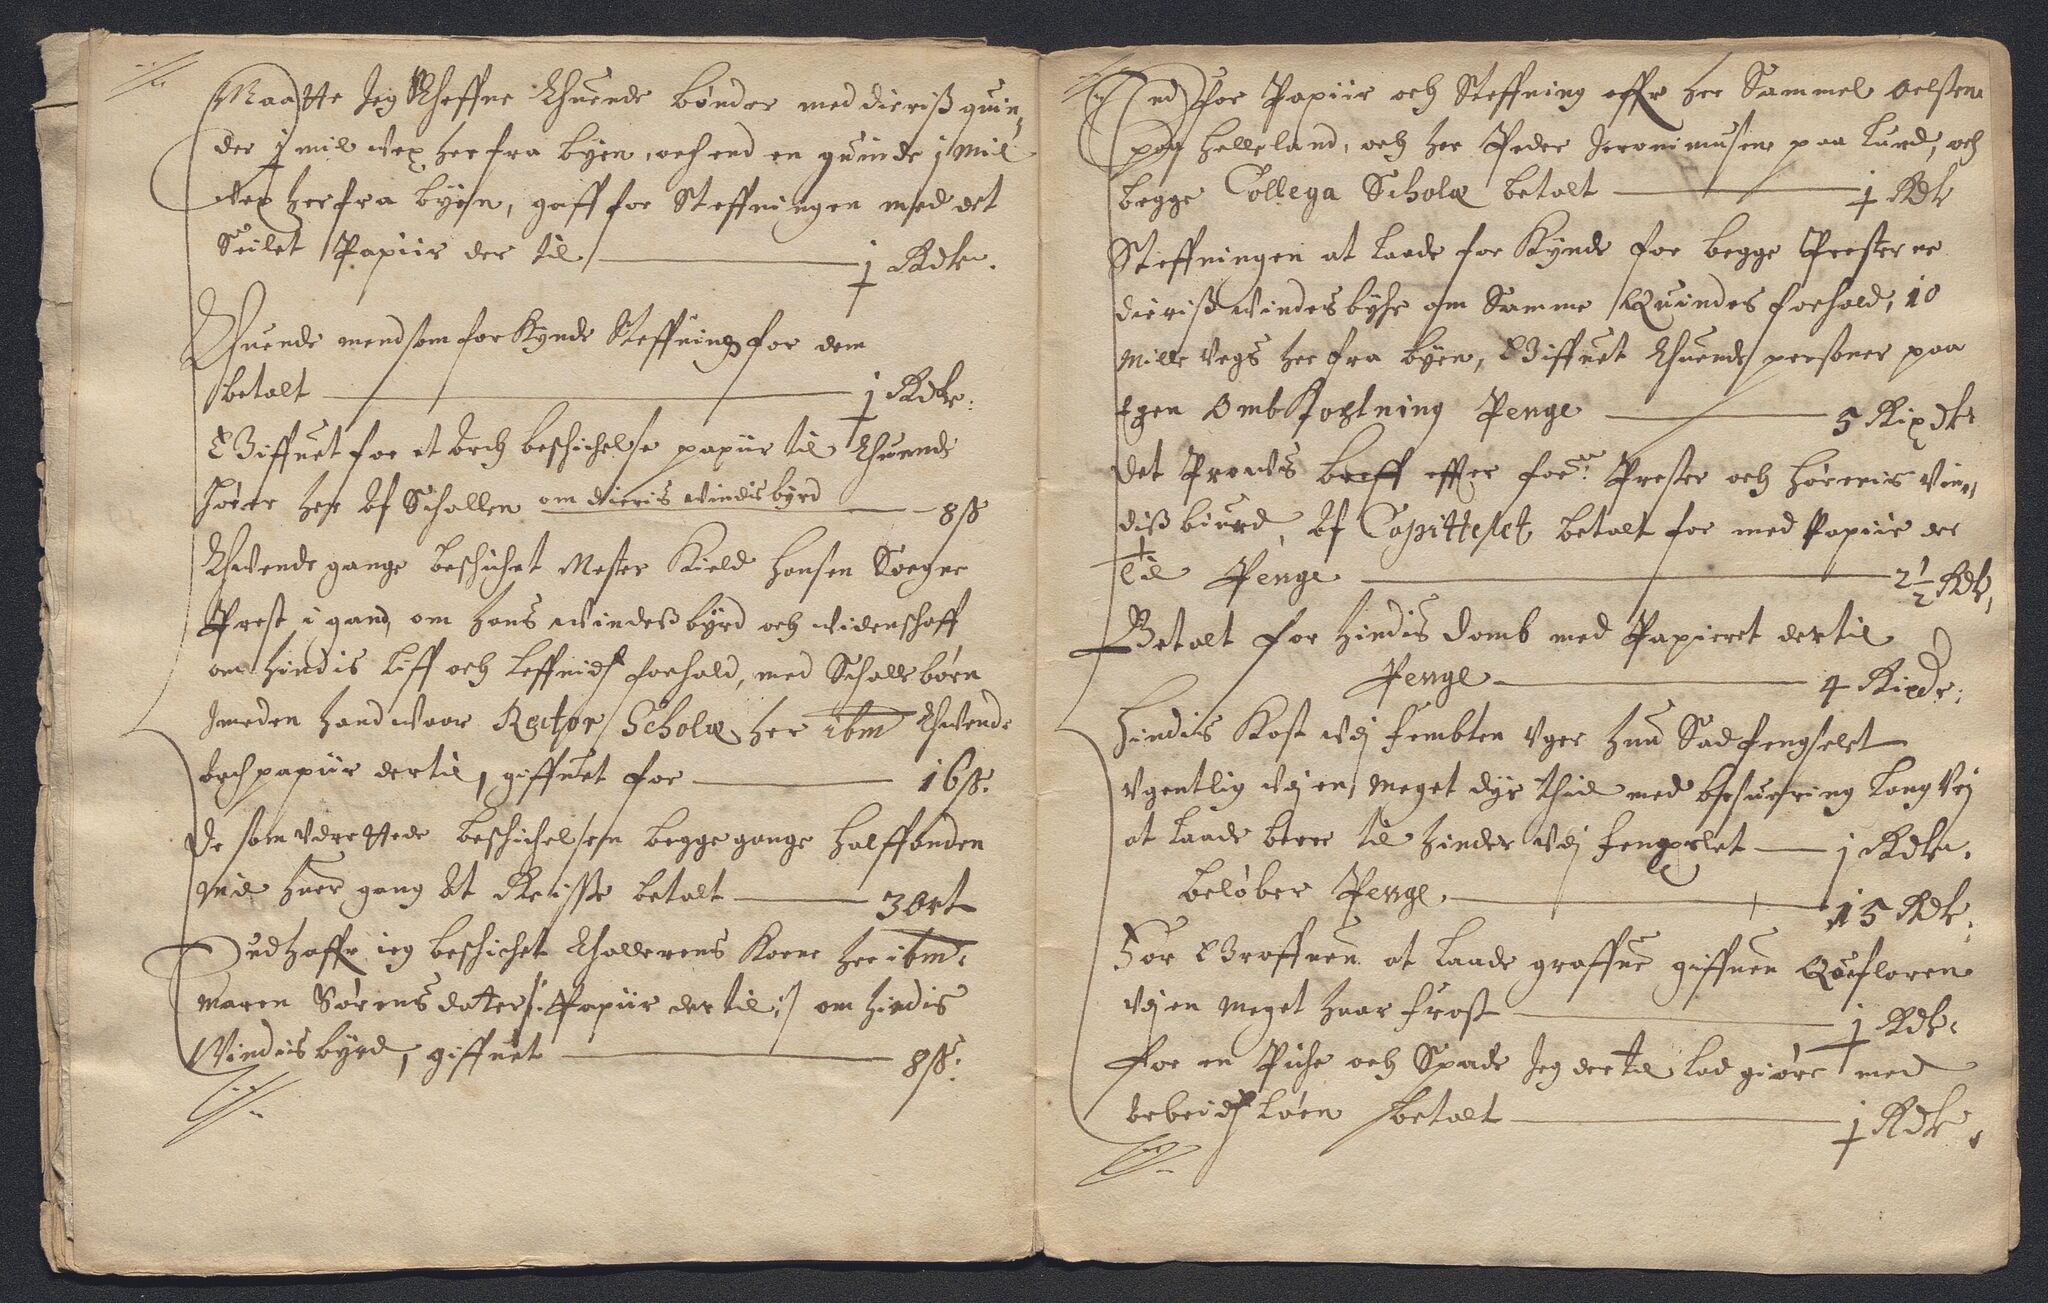 Maatte Jeg Steffne thuende bønder med dieris quin¬
der j mil vey her fra byen, och end en quinde j mil
vey her fra byen, gaff for Steffningen med det
Seilet Papiir der til j Rdlr.
Thuende mend som forkynde Steffning for dem
betalt j Rdlr.
Giffuet for et arch beschichelse papiir til thuende
hører her af Schollen om dieris windisbyrd 8 ß
Thvende gange beschichet Mester Kield Hansen Sogne
Prest i gaud, om hans windesbyrd och widenschaff
om hindis liff och leffnidz forhold, med Scholle børn
imeden hand waar Rector Scholæ her ibm thvende
arch papiir dertil, giffuet for 16 ß.
De som vdrettede beschichelsen begge gange halffanden
mil huer gang at Reisse betalt 3 Ort
End haffr ieg beschichet Challerens Kone her ibm.
Maren Sørensdatter /: Papiir der til :/ om hindis
Windisbyrd, giffuet 8 ß.
End for Papiir och Steffning effter her Sammel Oelsen
paa Helleland, och her Peder Jeronimusen paa Lund, och
begge Collega Scholæ betalt j Rdlr
Steffningen at laade forkynde for begge Presterne
dieris windesbyhr om Samme Quindes forhold, 10
Mille Vegs her fra byen, Giffuet thuende personer paa
Egen Omb Kostning Penge 5 Rixdlr
Det Prows breff effter for.ne Prester och hørernis Vin¬
dis biurd, Af Capittelet betalt for med Papiir der
til Penge 2½ Rdlr,
Betalt for hindis Domb med Papieret dertil
Penge 4 Rixdr.
Hindis Kost vdj fembten Vger hun Sad fengslet
Vgentlig vdj en meget dyr thid med besuering Langvej
at laade bere til hinder vdj fengxlet j Rdlr.
beløber Penge 15 Rdlr.
For Graffuen at laade graffue giffuen
vdj en meget haar frost j Rdlr.
For en Piche och Spade Jeg der til lod giøre med
Arbeidz Løen betalt j Rdlr.